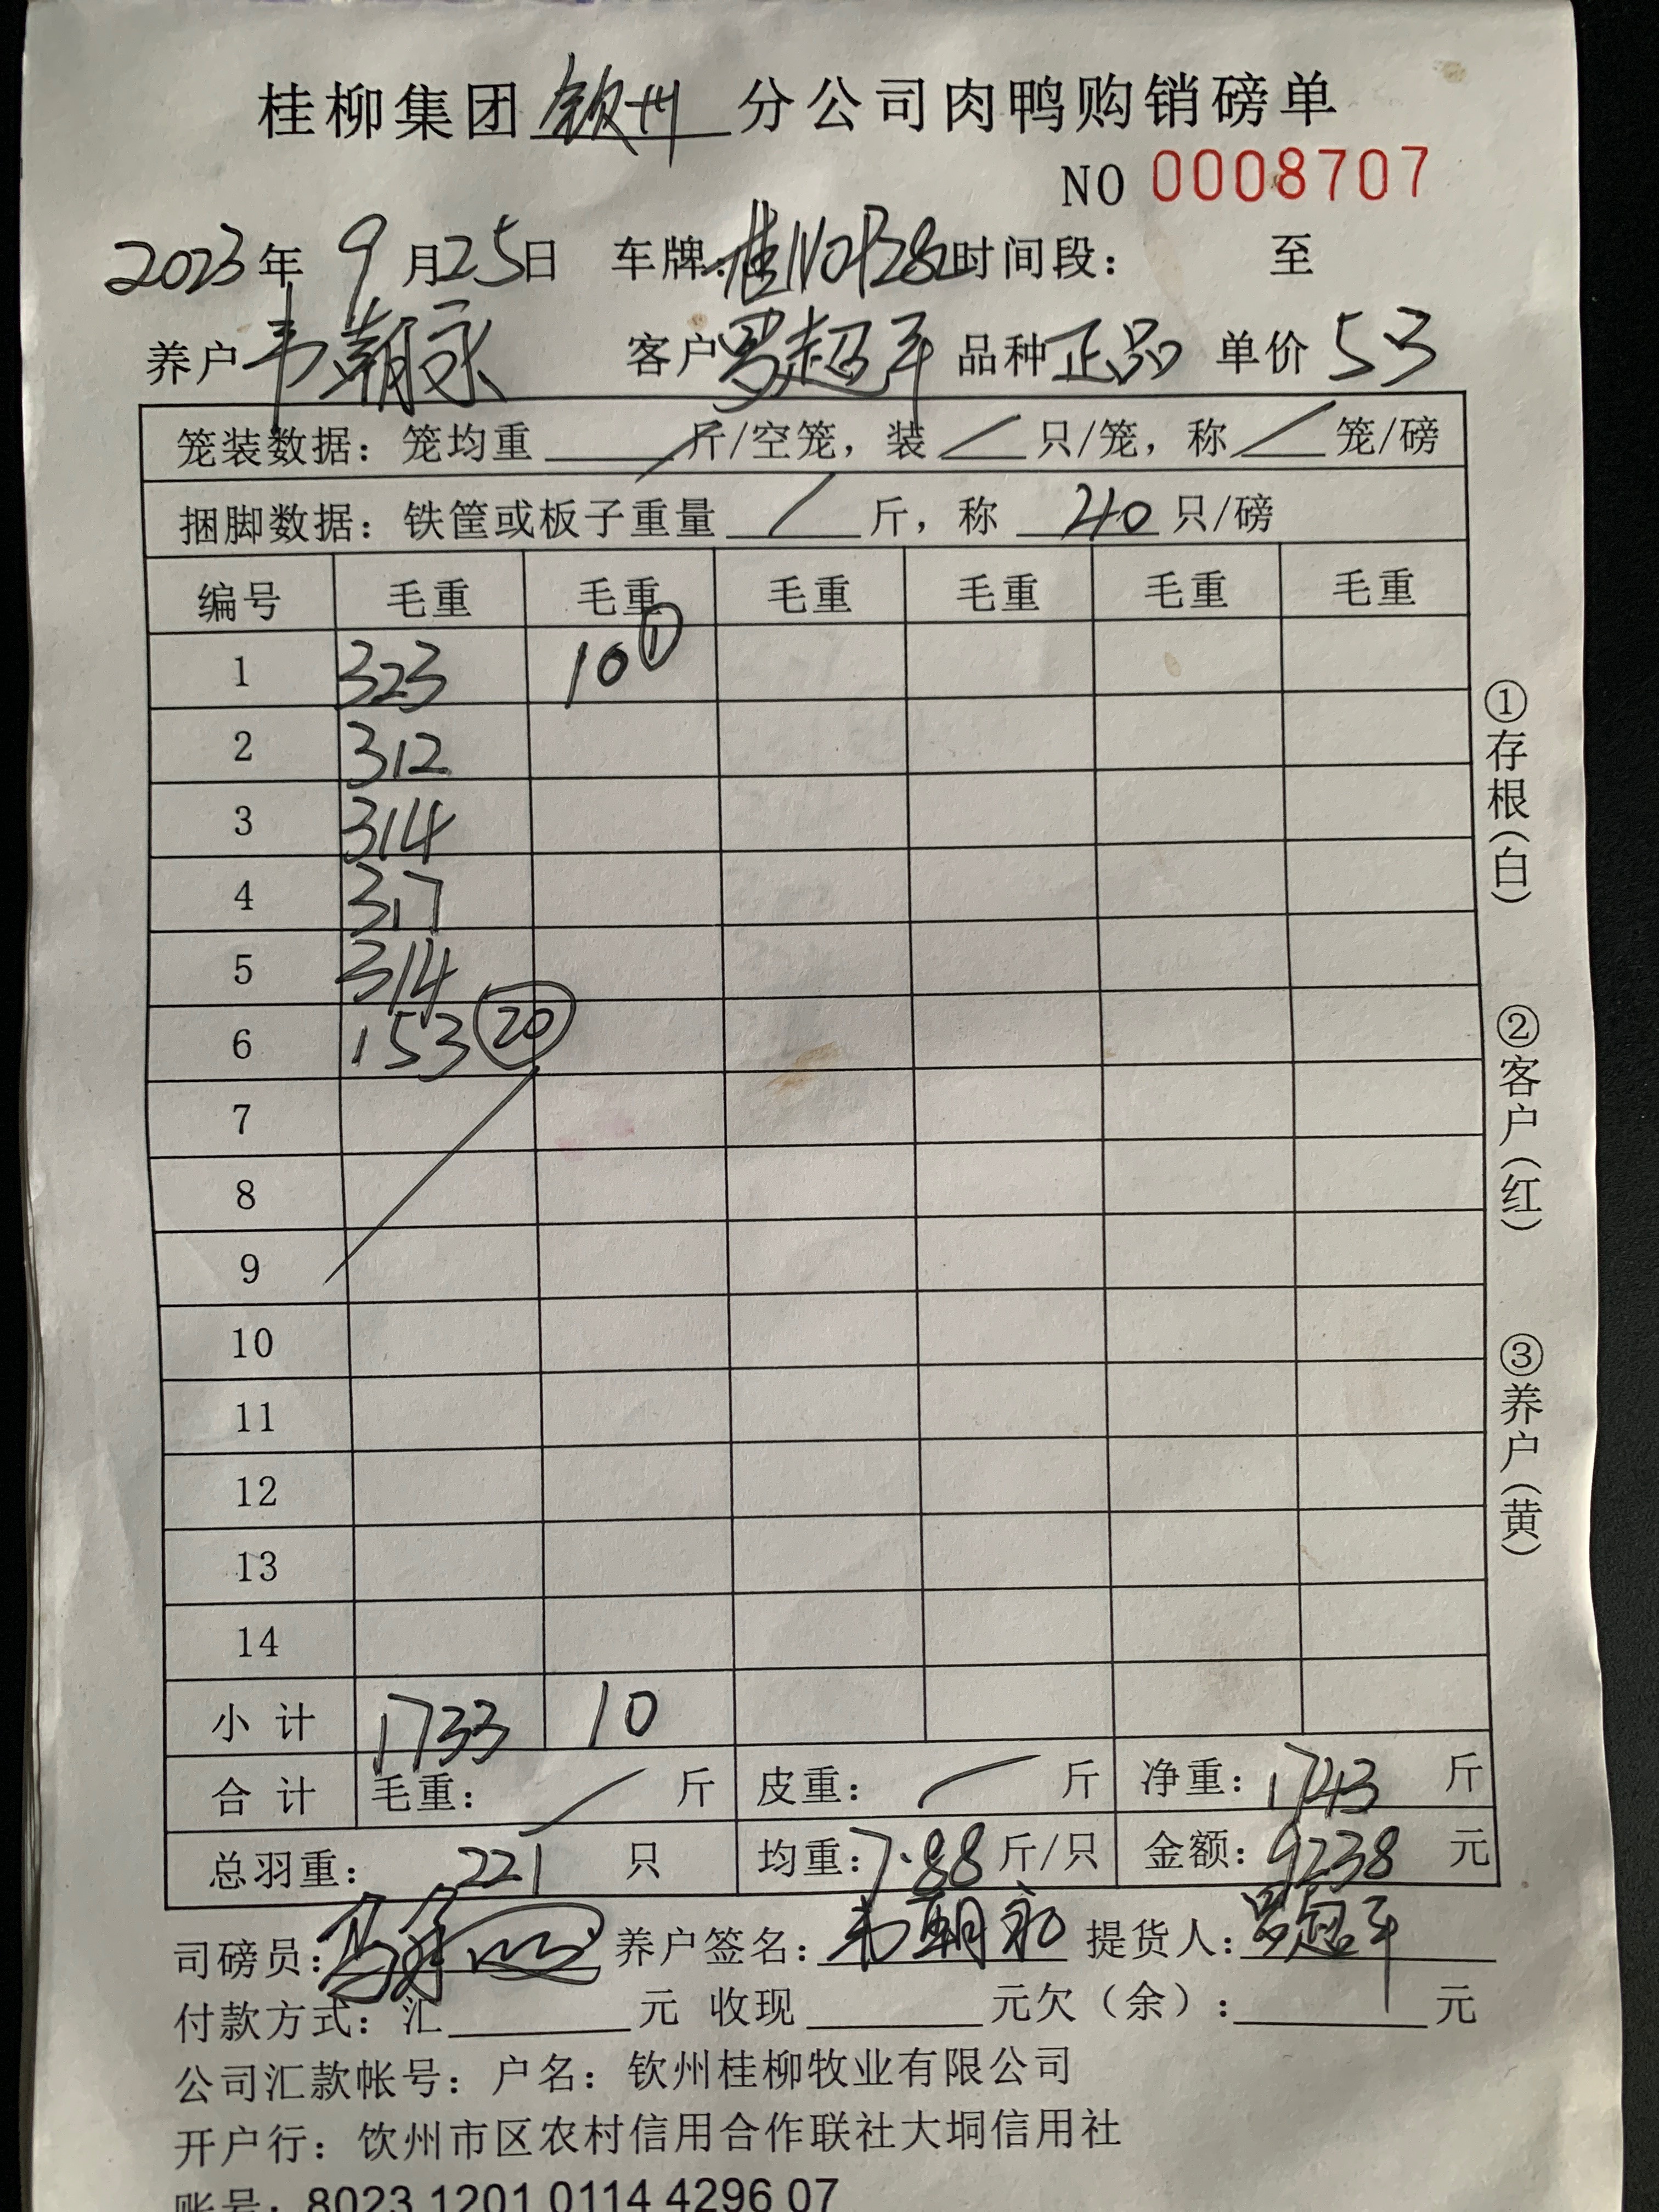 桂柳集团 钦州 分公司肉鸭购销磅单
NO 0008707
2023年 9月25日 车牌: 时间段： 至
养户 韦朝永 客户 罗超平 品种 正品 单价 53
笼装数据：笼均重 / 斤/空笼，装 / 只/笼，称 / 笼/磅
捆脚数据：铁筐或板子重量 / 斤，称 40 只/磅
编号 毛重 毛重 毛重 毛重 毛重 毛重
1 323 10 ①
2 312
3 314
4 317
5 314
6 153 ⑳
7
8
9
10
11
12
13
14
小 计 1733 10
合 计 毛重： / 斤 皮重： / 斤 净重：1743 斤
总羽重： 221 只 均重：7.88 斤/只 金额：9238 元
司磅员： 养户签名：韦朝永 提货人：罗超平
付款方式：汇 元 收现 元欠（余）： 元
公司汇款帐号：户名：钦州桂柳牧业有限公司
开户行：钦州市区农村信用合作联社大垌信用社
账号：8023 1201 0114 4296 07
①存根（白）
②客户（红）
③养户（黄）